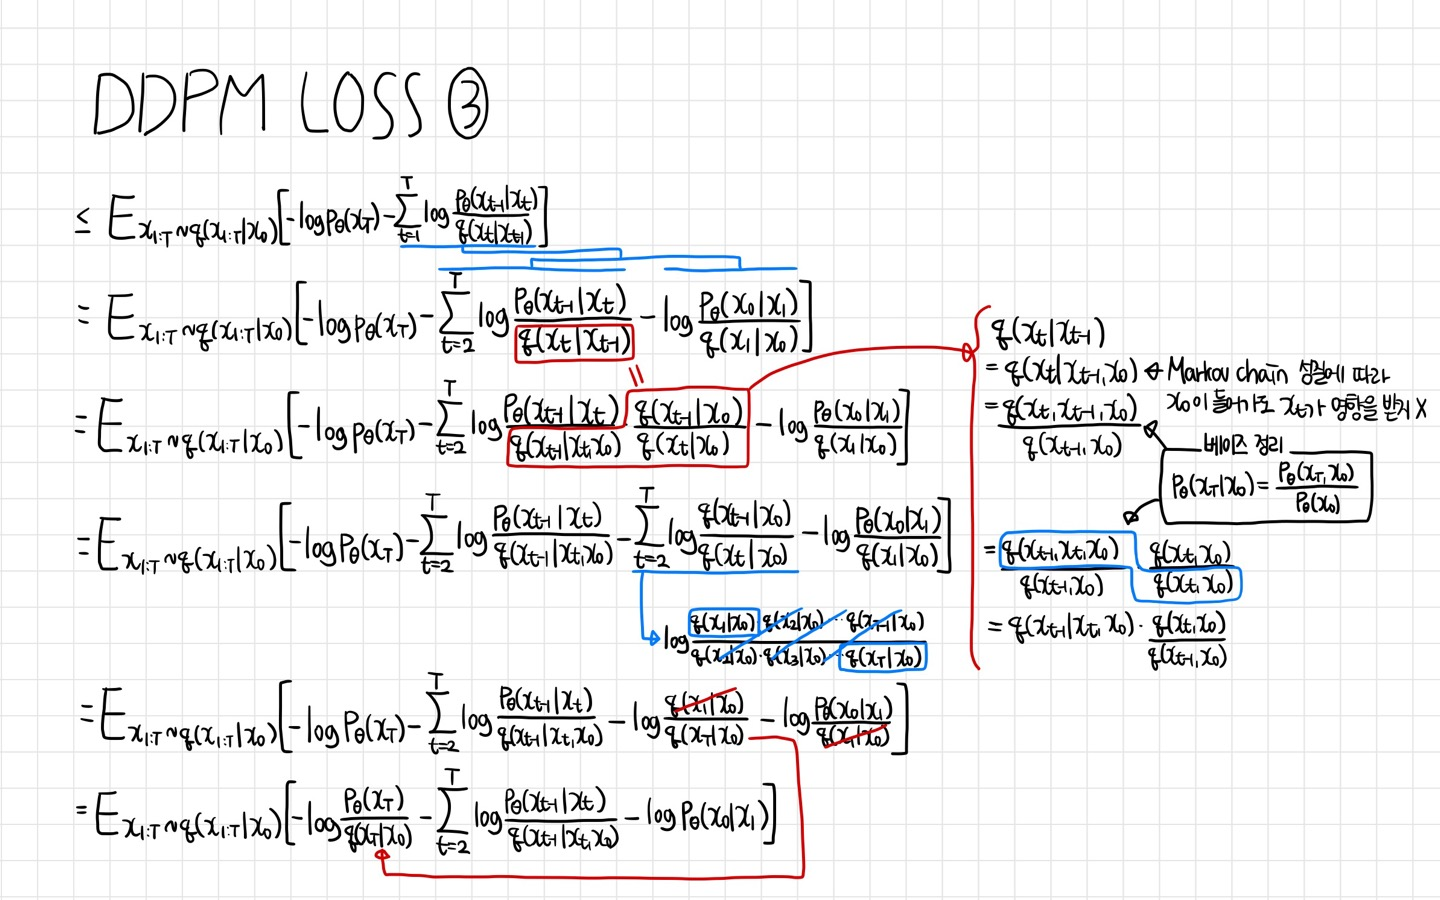 DDPM LOSS ③
≤ E_{x_{1:T}~q(x_{1:T}|x_0)} [ -log p_θ(x_T) - Σ_{t=1}^{T} log \frac{p_θ(x_{t-1}|x_t)}{q(x_t|x_{t-1})} ]
= E_{x_{1:T}~q(x_{1:T}|x_0)} [ -log p_θ(x_T) - Σ_{t=2}^{T} log \frac{p_θ(x_{t-1}|x_t)}{q(x_t|x_{t-1})} - log \frac{p_θ(x_0|x_1)}{q(x_1|x_0)} ]
=
= E_{x_{1:T}~q(x_{1:T}|x_0)} [ -log p_θ(x_T) - Σ_{t=2}^{T} log \frac{p_θ(x_{t-1}|x_t)}{q(x_{t-1}|x_t,x_0)} \frac{q(x_{t-1}|x_0)}{q(x_t|x_0)} - log \frac{p_θ(x_0|x_1)}{q(x_1|x_0)} ]
= E_{x_{1:T}~q(x_{1:T}|x_0)} [ -log p_θ(x_T) - Σ_{t=2}^{T} log \frac{p_θ(x_{t-1}|x_t)}{q(x_{t-1}|x_t,x_0)} - Σ_{t=2}^{T} log \frac{q(x_{t-1}|x_0)}{q(x_t|x_0)} - log \frac{p_θ(x_0|x_1)}{q(x_1|x_0)} ]
log \frac{q(x_1|x_0)·q(x_2|x_0)···q(x_{T-1}|x_0)}{q(x_2|x_0)·q(x_3|x_0)···q(x_T|x_0)}
= E_{x_{1:T}~q(x_{1:T}|x_0)} [ -log p_θ(x_T) - Σ_{t=2}^{T} log \frac{p_θ(x_{t-1}|x_t)}{q(x_{t-1}|x_t,x_0)} - log \frac{q(x_1|x_0)}{q(x_T|x_0)} - log \frac{p_θ(x_0|x_1)}{q(x_1|x_0)} ]
= E_{x_{1:T}~q(x_{1:T}|x_0)} [ -log \frac{p_θ(x_T)}{q(x_T|x_0)} - Σ_{t=2}^{T} log \frac{p_θ(x_{t-1}|x_t)}{q(x_{t-1}|x_t,x_0)} - log p_θ(x_0|x_1) ]
q(x_t|x_{t-1})
= q(x_t|x_{t-1},x_0) ← Markov chain 성질에 따라
x_0이 들어가도 x_t가 영향을 받지 X
= \frac{q(x_t,x_{t-1},x_0)}{q(x_{t-1},x_0)}
베이즈 정리
p_θ(x_T|x_0) = \frac{p_θ(x_T,x_0)}{p_θ(x_0)}
= \frac{q(x_{t-1},x_t,x_0)}{q(x_{t-1},x_0)} \frac{q(x_t,x_0)}{q(x_t,x_0)}
= q(x_{t-1}|x_t,x_0) · \frac{q(x_t,x_0)}{q(x_{t-1},x_0)}